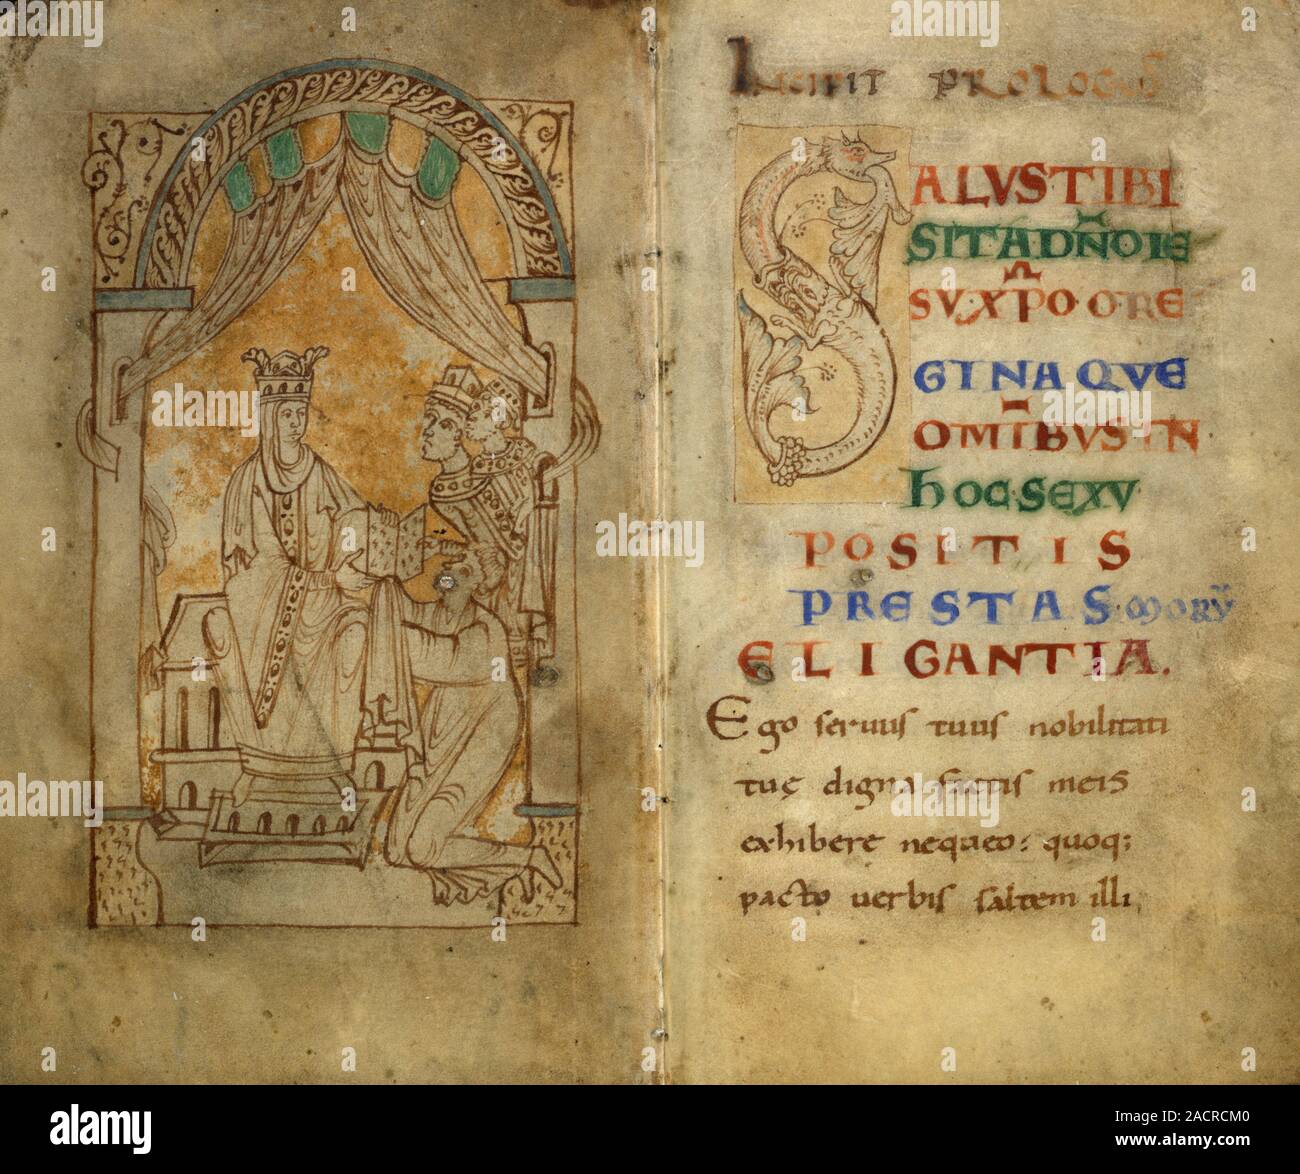 INCIPIT PROLOGUS
SALVS TIBI
SIT A DÑO IE
SV XPO O RE
GINA QVE
OMIBVS IN
HOC SEXV
POSITIS
PRESTAS MORV̄
ELIGANTIA.
Ego seruus tuus nobilitati
tuę digna factis meis
exhibere nequeo: quoq;
pacto uerbis saltem illi,
alamy
Image ID: 2ACRCM0
www.alamy.com